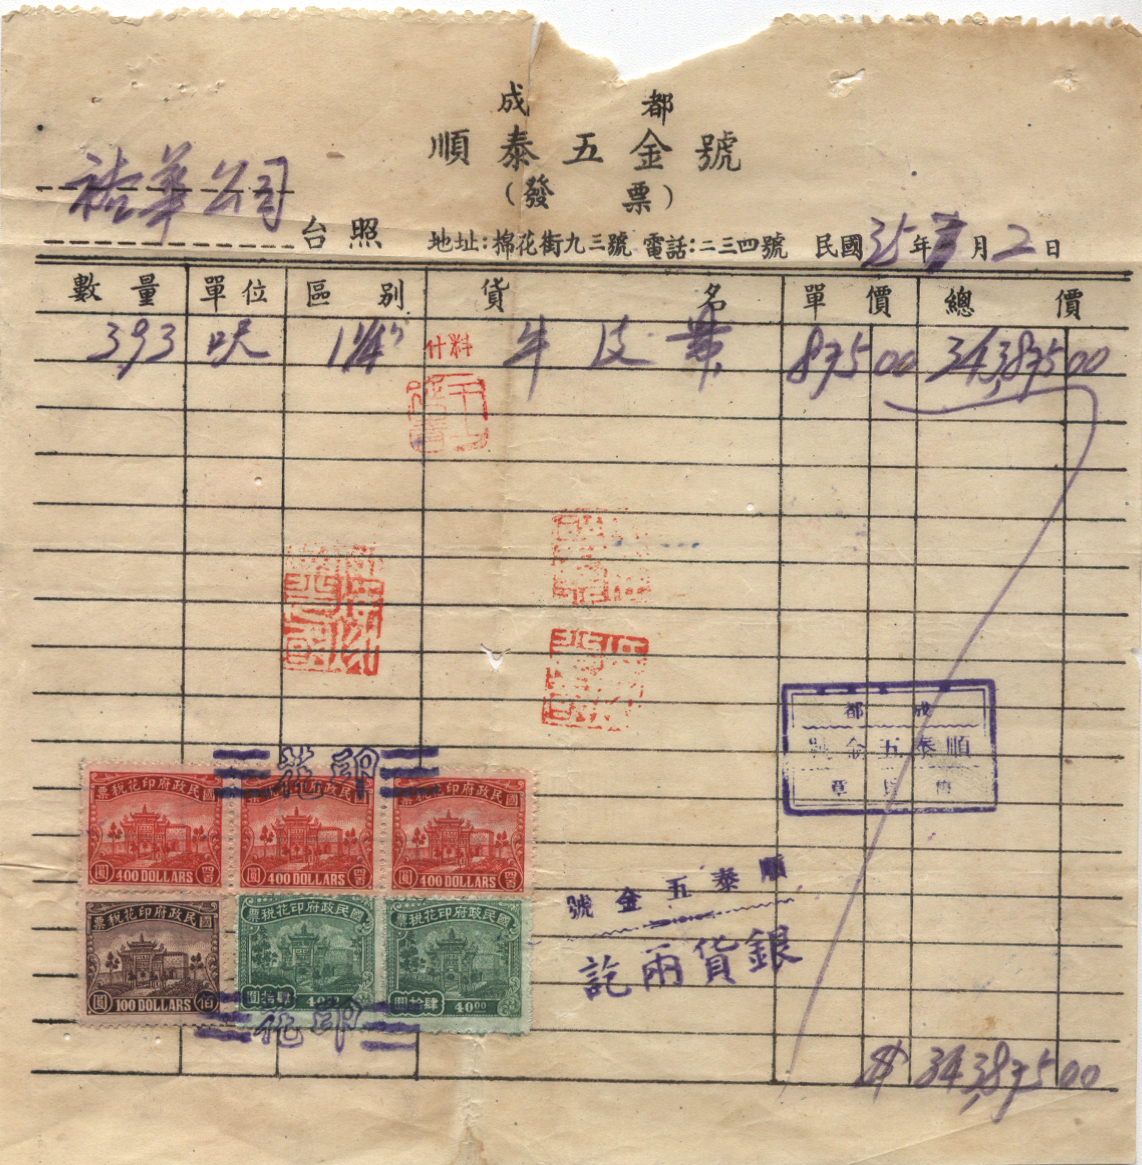 成都
順泰五金號
（發票）
祐華公司
台照
地址：棉花街九三號 電話：二三四號 民國35年 月2日
數量 單位 區別 貨名 單價 總價
393 呎 1¼" 牛皮帶 875 00 343,875 00
什料
成都
順泰五金號
章
印花
國民政府印花稅票
圓 400 DOLLARS 四百
國民政府印花稅票
圓 400 DOLLARS 四百
國民政府印花稅票
圓 400 DOLLARS 四百
國民政府印花稅票
圓 100 DOLLARS 佰
國民政府印花稅票
肆拾圓 40 00
國民政府印花稅票
肆拾圓 40 00
印花
順泰五金號
銀貨兩訖
$ 343,875 00